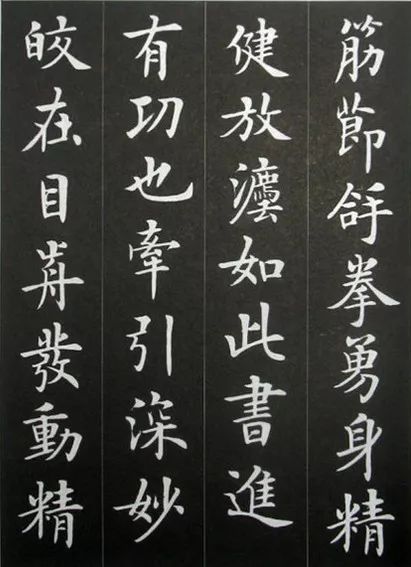 筋莭舒拳勇身精
健放灋如此書進
有功也牽引深妙
皎在目歬發動精